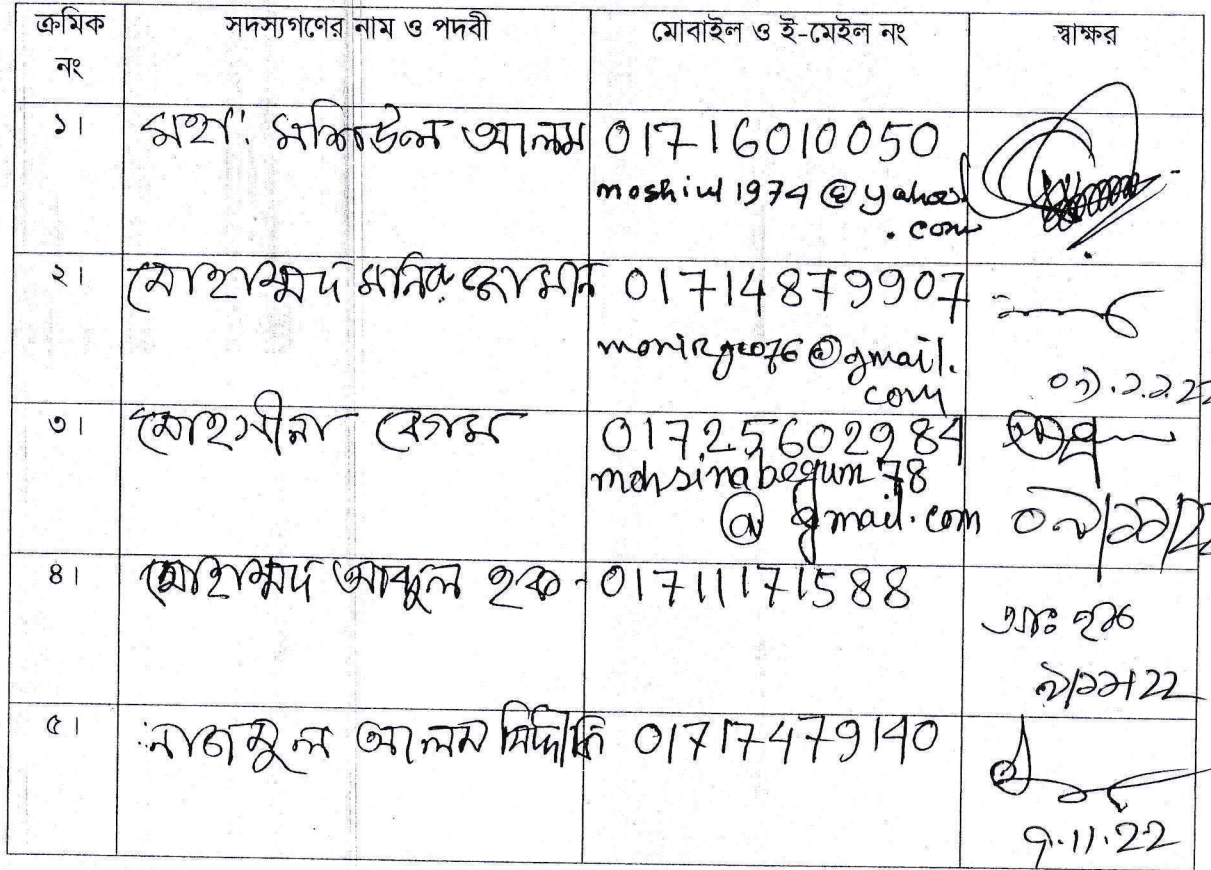 ক্রমিক নং
সদস্যগণের নাম ও পদবী
মোবাইল ও ই-মেইল নং
স্বাক্ষর
১। মহা: মশিউল আলম 01716010050
moshiul1974@yahoo
.com
২। মোহাম্মদ মনিরুজ্জামান 01714879907
@gmail.
com
৩। মোহসীনা বেগম 01725602984
mohsinabegum78
@gmail.com
০৯/১১/22
৪। মোহাম্মদ আবুল হক - 01711171588
আঃ হক
৯/১১/22
৫। নাজমুল আলম সিদ্দিকি 01717479140
9.11.22